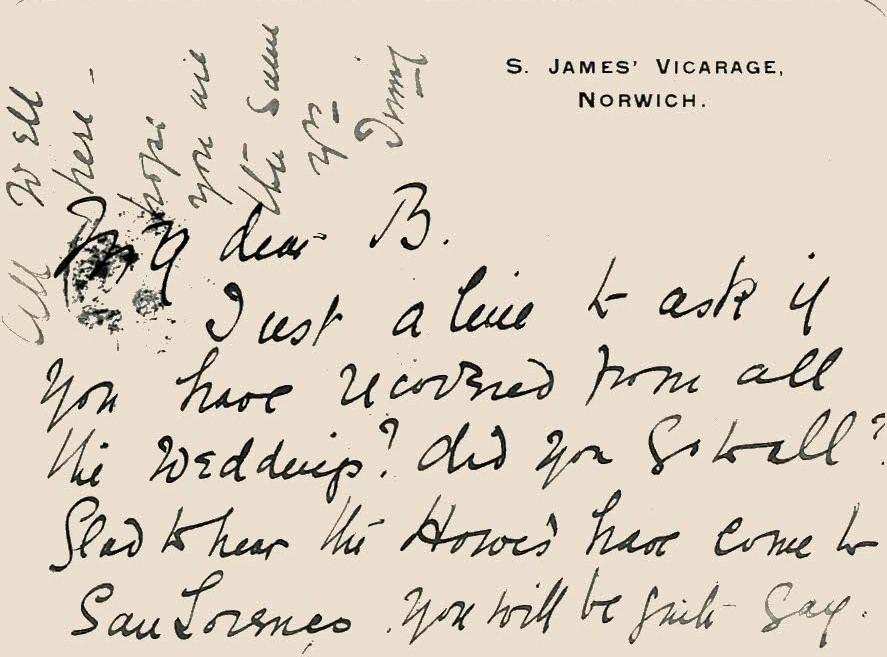 S. JAMES' VICARAGE,
NORWICH.
My dear B.
Just a line to ask if
you have recovered from all
the weddings? did you go to all?
Glad to hear the Howes have come to
San Lorenzo. You will be quite gay.
All well
here -
hope
you are
the same
Yrs